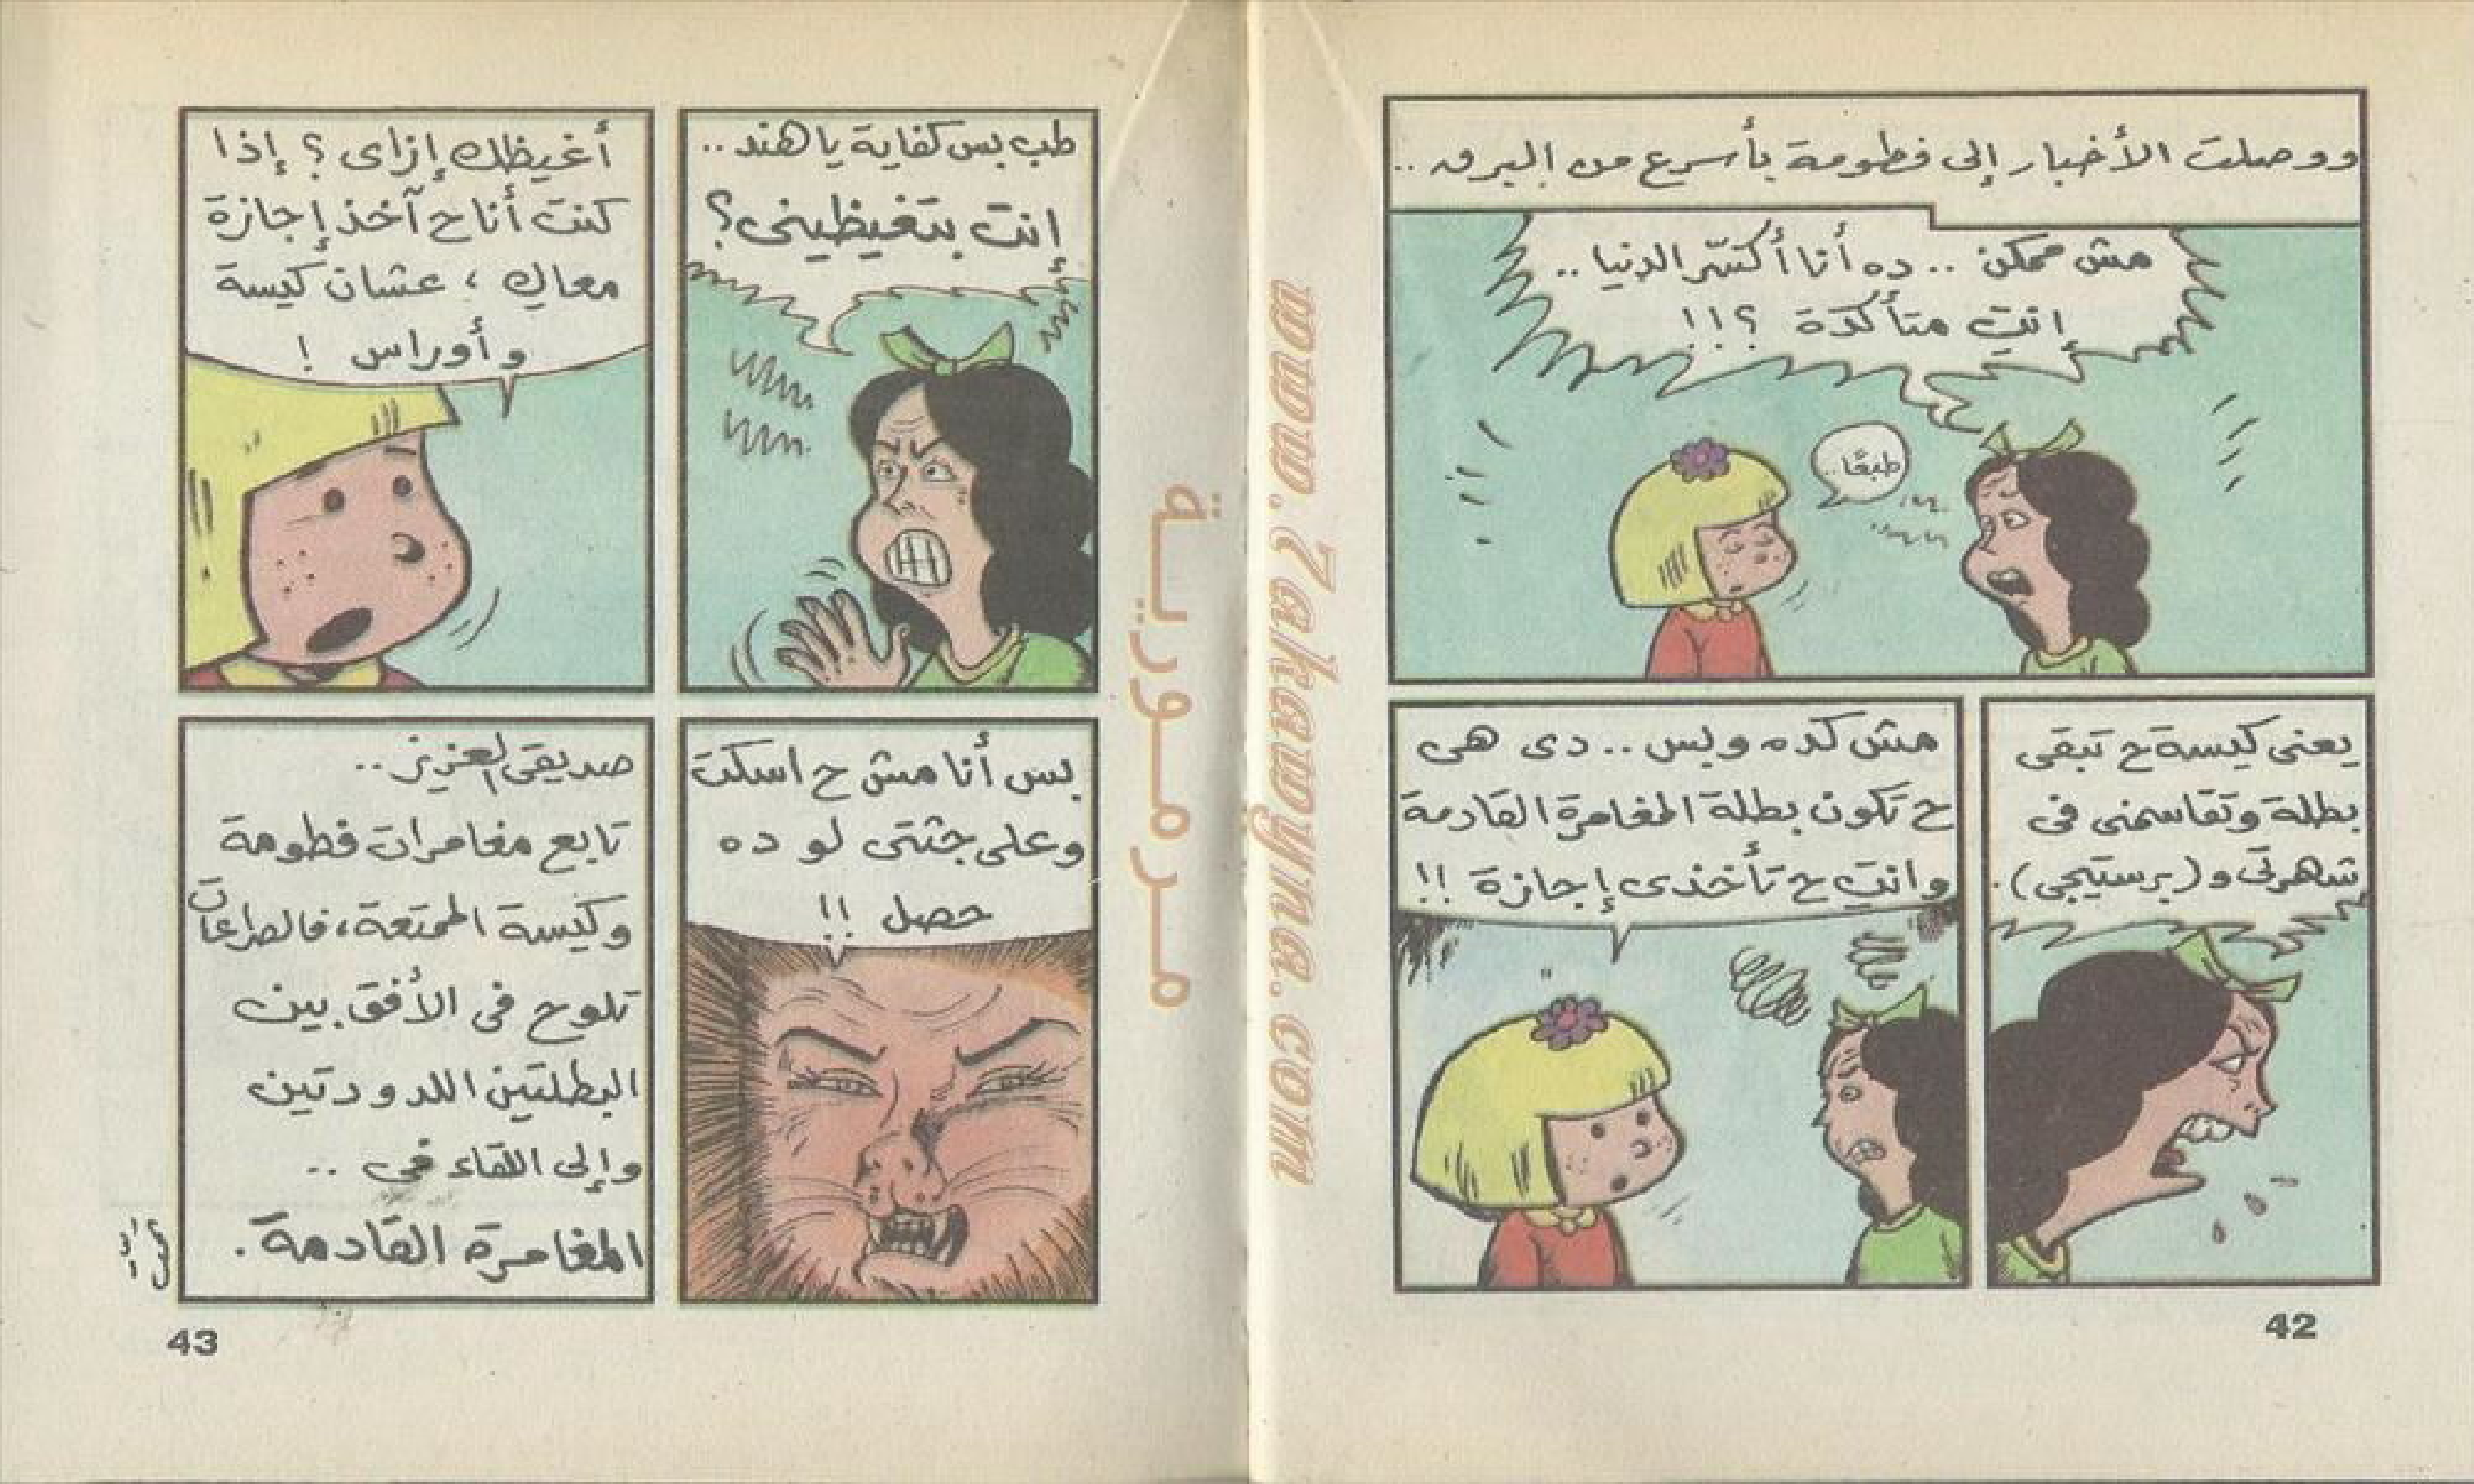 ووصلت الأخبار إلى فطومة بأسرع من البرق ..
مش ممكن .. ده أنا أكسّر الدنيا ..
إنتِ متأكدة ؟!!
طبعًا ..
يعنى كيسة ح تبقى
بطلة وتقاسمنى فى
شهرتى و(برستيجى).
مش كده وبس .. دى هى
ح تكون بطلة المغامرة القادمة
وانتِ ح تأخذى إجازة !!
42
طب بس كفاية يا هند ..
إنتِ بتغيظينى؟
أغيظك إزاى ؟ إذا
كنت أنا ح آخذ إجازة
معاكِ ، عشان كيسة
وأوراس !
بس أنا مش ح اسكت
وعلى جثتى لو ده
حصل !!
صديقى العزيز ..
تابع مغامرات فطومة
وكيسة الممتعة، فالصراعات
تلوح فى الأفق بين
البطلتين اللدودتين
وإلى اللقاء فى ..
المغامرة القادمة .
43
مرمورية
www.7akawyna.com